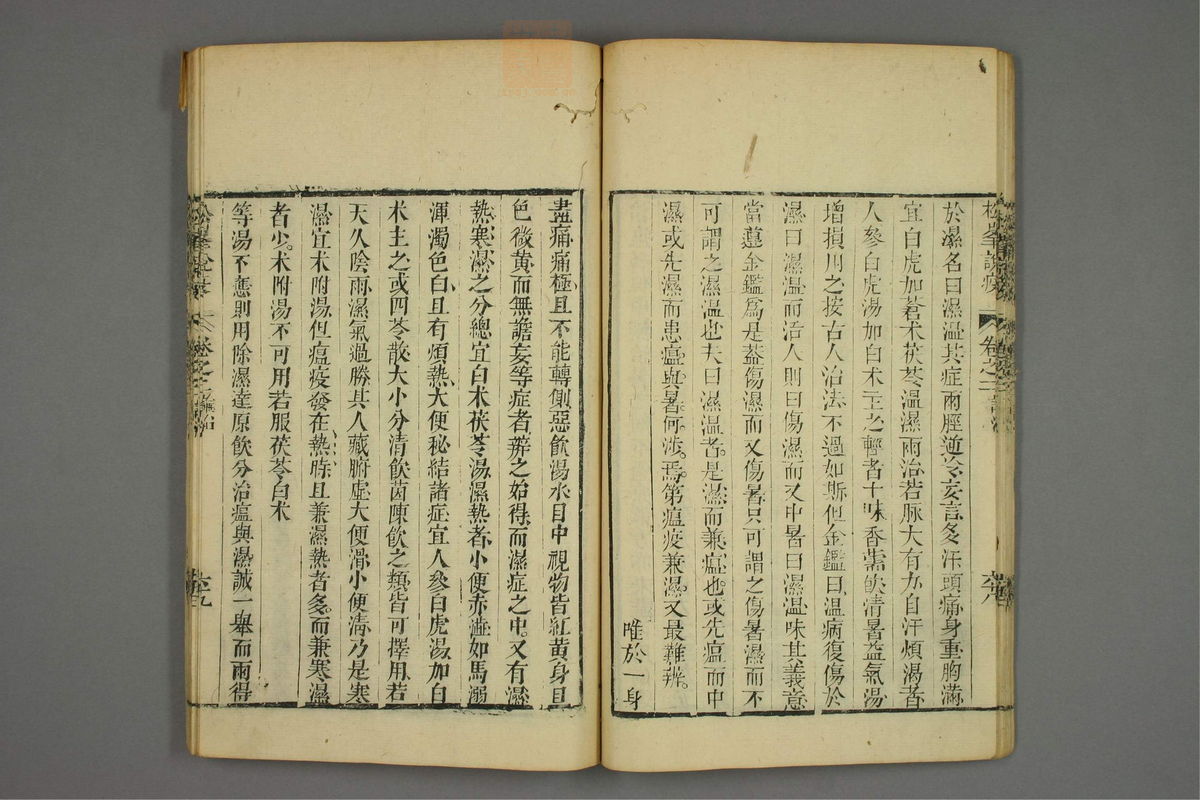 松峯說疫
卷之二
六八
於濕名曰濕溫其症兩脛逆冷妄言多汗頭痛身重胸滿
宜白虎加蒼术茯苓溫濕兩治若脉大有力自汗煩渴者
人參白虎湯加白术主之輕者十味香薷飲清暑益氣湯
增損用之按古人治法不過如斯但金鑑曰温病復傷於
濕曰濕溫而活人則曰傷濕而又中暑曰濕溫味其義意
當遵金鑑爲是葢傷濕而又傷暑只可謂之傷暑濕而不
可謂之濕溫也夫曰濕溫者是濕而兼瘟也或先瘟而中
濕或先濕而患瘟與暑何涉焉第瘟疫兼濕又最難辨
唯於一身
盡痛痛極且不能轉側惡飲湯水目中視物皆紅黃身目
色微黃而無譫妄等症者辨之始得而濕症之中又有濕
熱寒濕之分總宜白术茯苓湯濕熱者小便赤澁如馬溺
渾濁色白且有煩熱大便秘結諸症宜人參白虎湯加白
术主之或四苓散大小分清飲茵陳飲之類皆可擇用若
天久陰雨濕氣過勝其人藏腑虛大便滑小便清乃是寒
濕宜术附湯但瘟疫發在熱時且兼濕熱者多而兼寒濕
者少术附湯不可用若服茯苓白术
等湯不應則用除濕達原飲分治瘟與濕誠一舉而兩得
松峯說疫
卷之二
六九